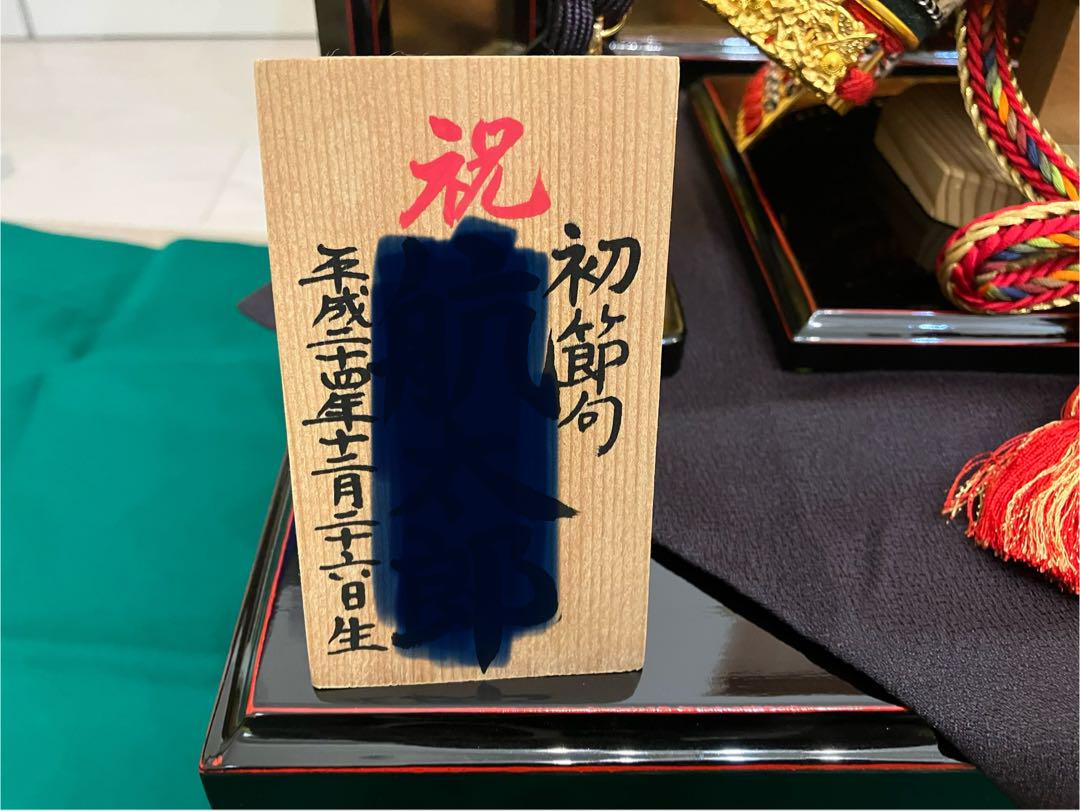 祝
初節句
平成二十四年十二月二十六日生